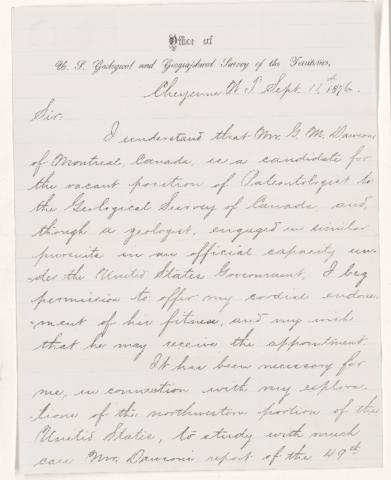 Office of
U. S. Geological and Geographical Survey of the Territories,
Cheyenne W. T. Sept. 11st 1876.
Sir:
I understand that Mr. G. M. Dawson
of Montreal, Canada, is a candidate for
the vacant position of Paleontologist to
the Geological Survey of Canada, and,
though a geologist, engaged in similar
pursuits in an official capacity un-
der the United States Government, I beg
permission to offer my cordial endorse-
-ment of his fitness, and my wish
that he may receive the appointment.
It has been necessary for
me, in connection with my explora-
tions of the northwestern portion of the
United States, to study with much
care Mr. Dawson's report of the 49th